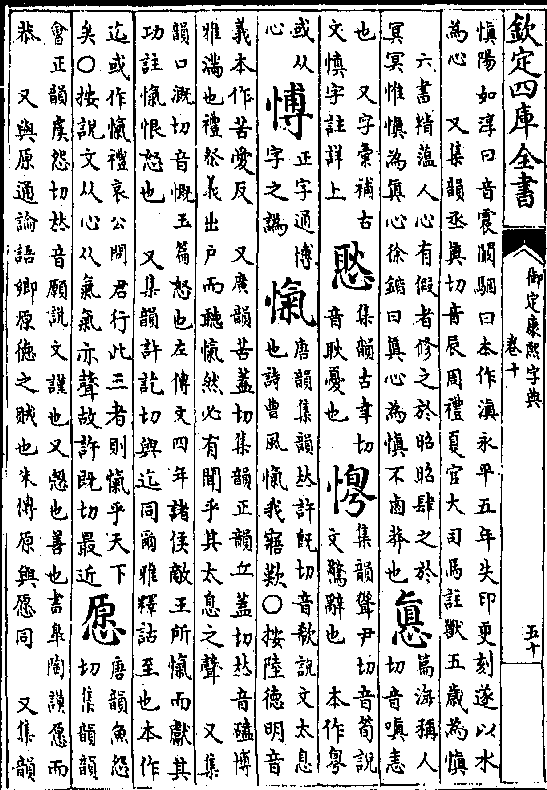 欽定四庫全書
御定康熙字典
卷十
五十
慎陽如淳曰音震闞駰曰本作滇永平五年失印更刻遂以水
為心　又集韻丞眞切音辰周禮夏官大司馬註獸五歲為慎
六書精藴人心有假者修之於昭昭肆之於
冥冥惟慎為眞心徐鍇曰眞心為慎不鹵莽也
篇海稱人
切音嗔恚
也　又字彙補古
文慎字註詳上
集韻古幸切
音耿憂也
集韻聳尹切音筍說
文驚辭也　本作㝁
或从
心
愽
正字通博
字之譌
愾
唐韻集韻𠀤許旣切音欷說文太息
也詩曹風愾我寤歎○按陸德明音
義本作苦愛反　又廣韻苦蓋切集韻正韻丘蓋切𠀤音磕博
雅滿也禮祭義出戶而聽愾然必有聞乎其太息之聲　又集
韻口漑切音慨玉篇怒也左傳文四年諸侯敵王所愾而獻其
功註愾恨怒也　又集韻許訖切與迄同爾雅釋詁至也本作
迄或作愾禮哀公問君行此三者則愾乎天下
矣○按說文从心从氣氣亦聲故許旣切最近
愿
唐韻魚怨
切集韻韻
會正韻虞怨切𠀤音願說文謹也又愨也善也書臯陶謨愿而
恭　又與原通論語鄉原德之賊也朱傳原與愿同　又集韻